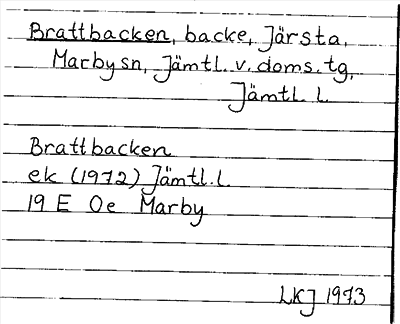 Brattbacken, backe, Järsta,
Marby sn, Jämtl. v. doms. tg,
Jämtl. l.
Brattbacken
ek (1972) Jämtl. l.
19 E 0e Marby
LKJ 1973